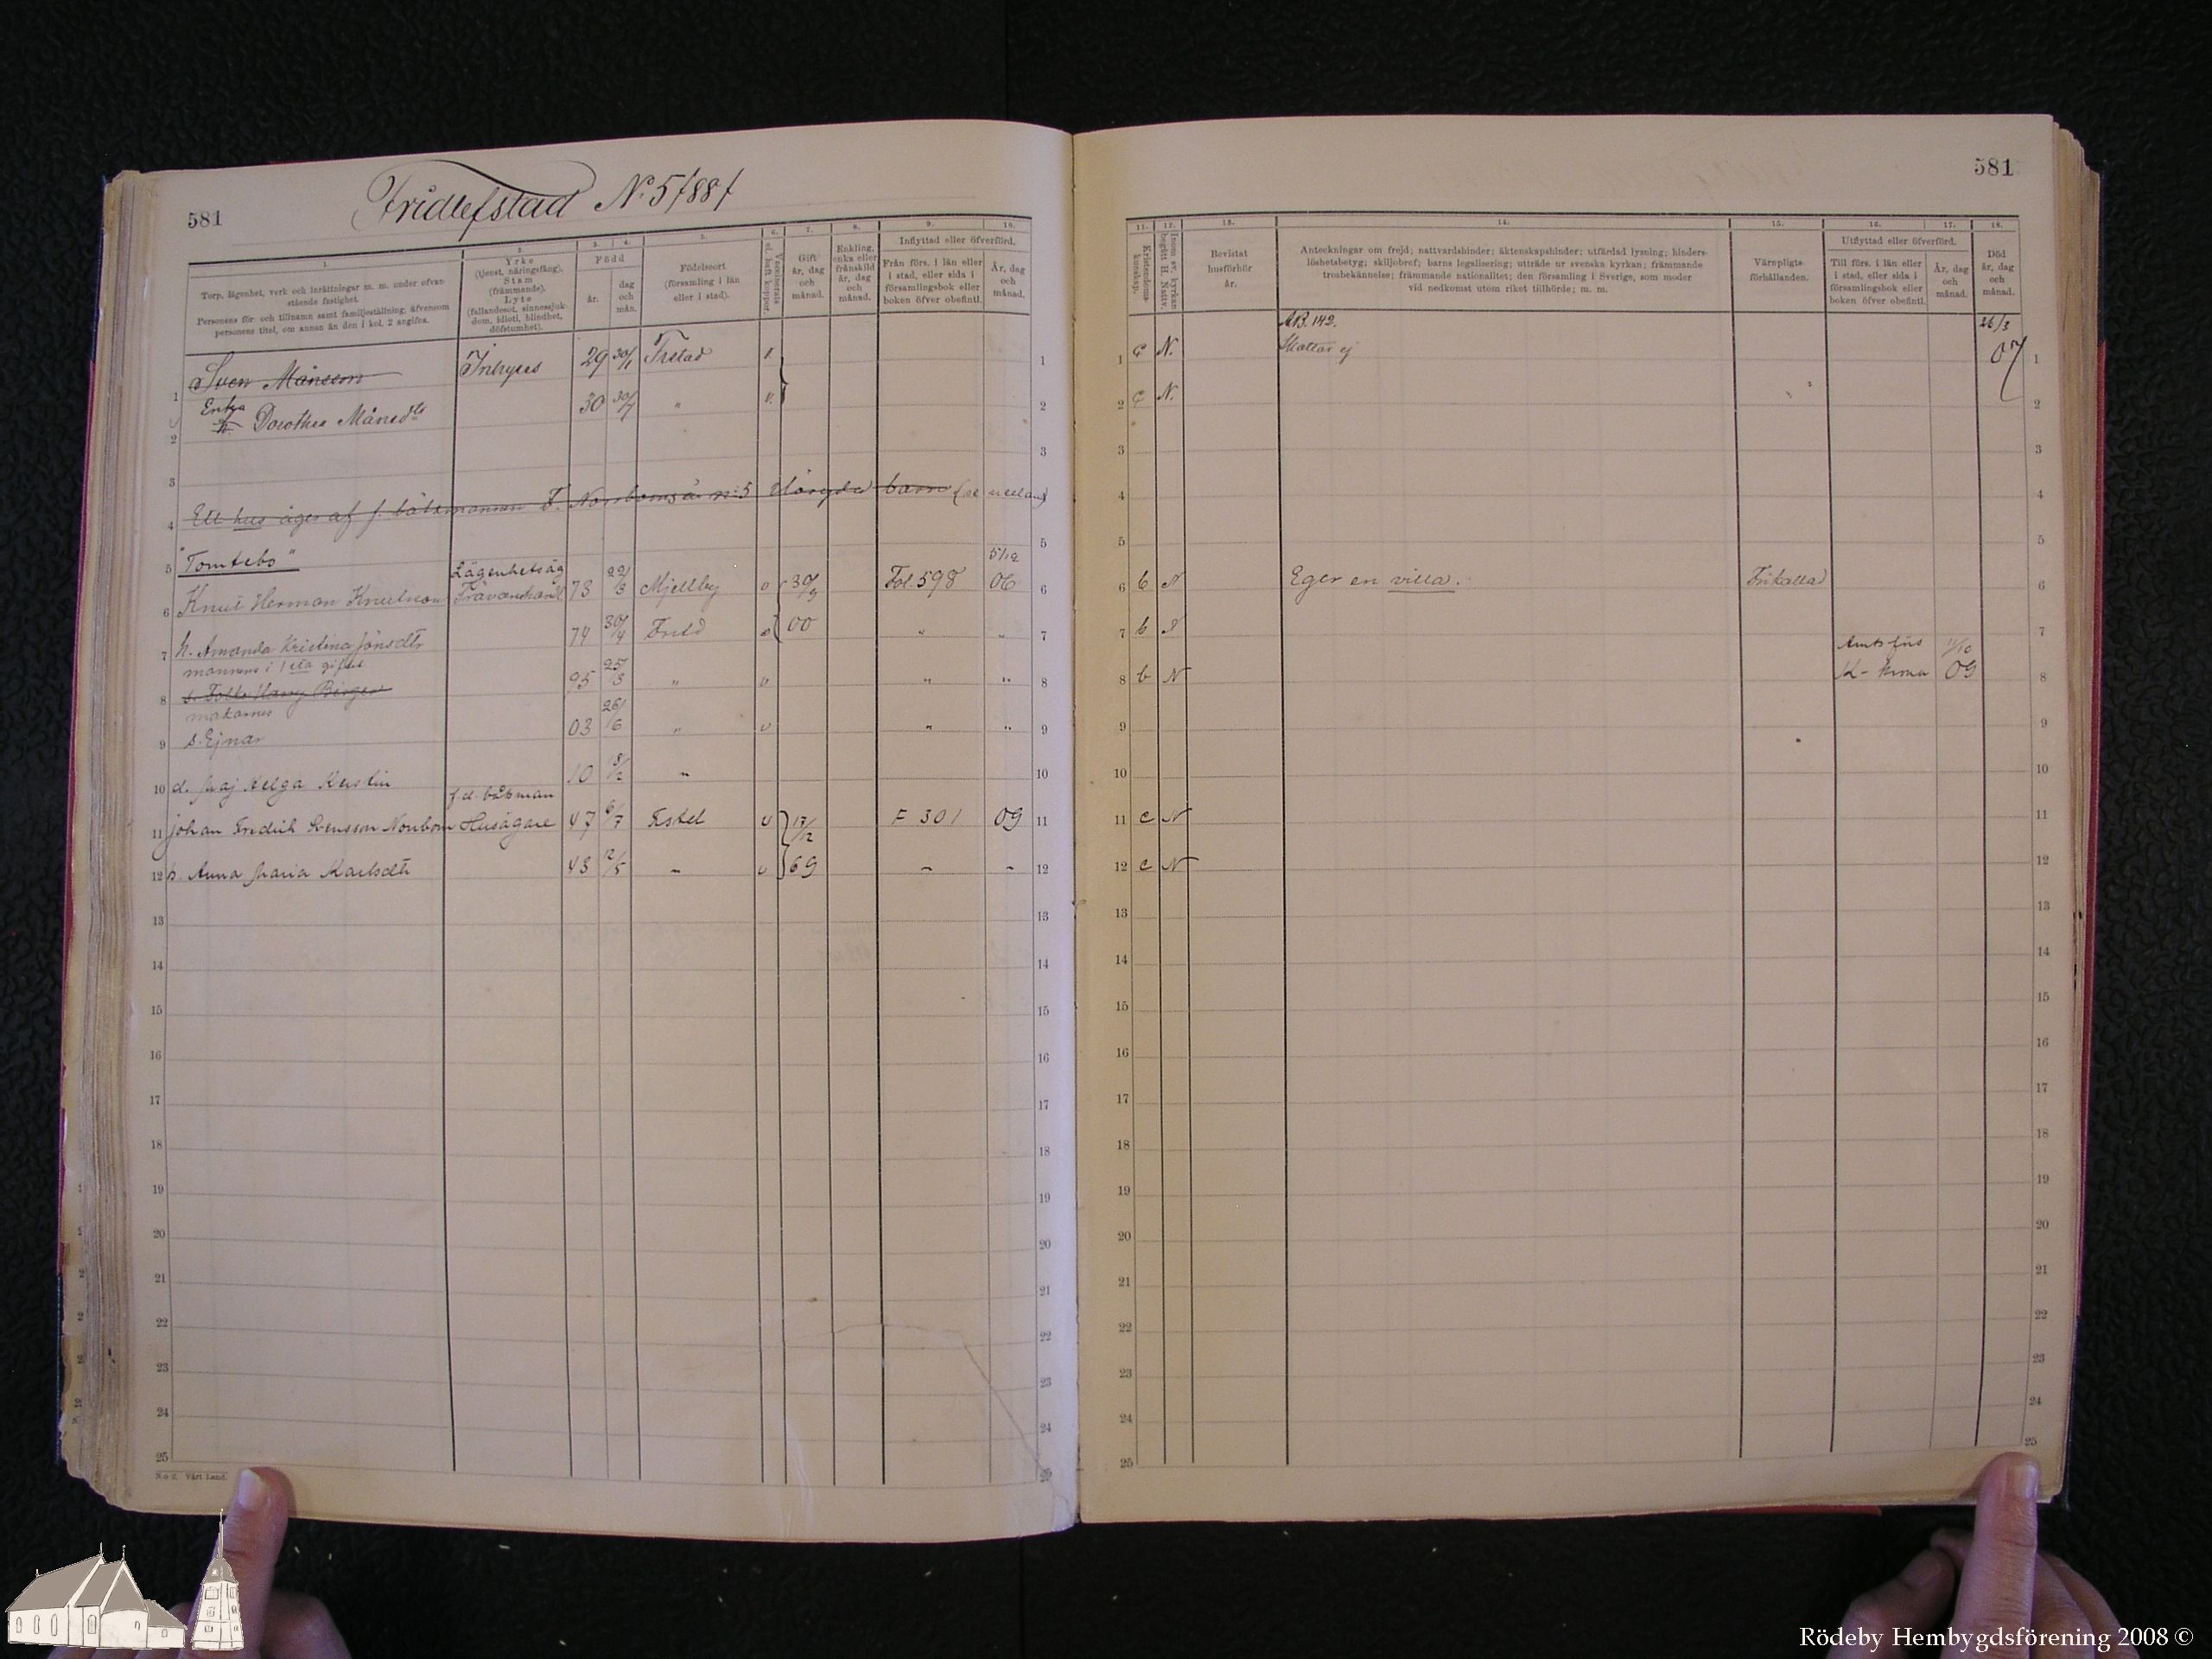 581
Fridlefstad No 5 /88/
1.
Torp, lägenhet, verk och inrättningar m. m. under ofvanstående fastighet.
Personens för- och tillnamn samt familjeställning, äfvensom personens titel, om annan än den i kol. 2 angifna.
2.
Yrke
(tjenst, näringsfång).
Stam
(främmande).
Lyte
(fallandesot, sinnessjukdom, idioti, blindhet, döfstumhet).
3. 4.
Född
år.
dag och mån.
5.
Födelseort
(församling i län eller i stad).
6.
Vaccinerats el. haft koppor.
7.
Gift
år, dag och månad.
8.
Enkling, enka eller frånskild
år, dag och månad.
9. 10.
Inflyttad eller öfverförd.
Från förs. i län eller i stad, eller sida i församlingsbok eller boken öfver obefintl.
År, dag och månad.
1 Sven Månsson Inhyses 29 30/1 Frstad v 1
Enka
2 h. Dorothea Månsdtr 30 30/7 " v. 2
3 3
4 Ett hus äges af f. båtsmannen F. Norrbom 4
"Tomtebo" 5
5 Lägenhetsäg 22/3 5/12
6 Knut Herman Knutsson Trävaruhandl 73 Mjellby v 30/9 Fol 598 06 6
7 h. Amanda Kristina Jönsdtr 74 30/4 v 00 " " 7
mannens i 1sta giftet
8 s. Folke Harry Birger 95 25/3 " v " " 8
makarnes
9 s. Ejnar 03 26/6 " v " " 9
10 d. Maj Helga Kerstin 10 18/2 " 10
f.d. båtsman
11 Johan Fredrik Svensson Norrbom Husägare 47 6/7 v 17/12 F 301 09 11
12 h. Anna Maria Karlsdtr 43 12/5 " v 69 " " 12
13 13
14 14
15 15
16 16
17 17
18 18
19 19
20 20
21 21
22 22
23 23
24 24
25 25
N:o 2. Vårt Land.
581
11.
Kristendomskunskap.
12.
Inom sv. kyrkan begått H. Nattv.
13.
Bevistat husförhör
år.
14.
Anteckningar om frejd; nattvardshinder; äktenskapshinder; utfärdad lysning; hinderslöshetsbetyg; skiljobref; barns legalisering; utträde ur svenska kyrkan; främmande trosbekännelse; främmande nationalitet; den församling i Sverige, som moder vid nedkomst utom riket tillhörde; m. m.
15.
Värnpligtsförhållanden.
16. 17.
Utflyttad eller öfverförd.
Till förs. i län eller i stad, eller sida i församlingsbok eller boken öfver obefintl.
År, dag och månad.
18.
Död
år, dag och månad.
AB. 142. 26/3
1 c N. Skattar ej 07 1
2 c N. 2
3 3
4 4
5 5
6 b N Eger en villa. Frikallad 6
7 b N 7
8 b N K-krona 09 8
9 9
10 10
11 c N 11
12 c N 12
13 13
14 14
15 15
16 16
17 17
18 18
19 19
20 20
21 21
22 22
23 23
24 24
25 25
Rödeby Hembygdsförening 2008 ©